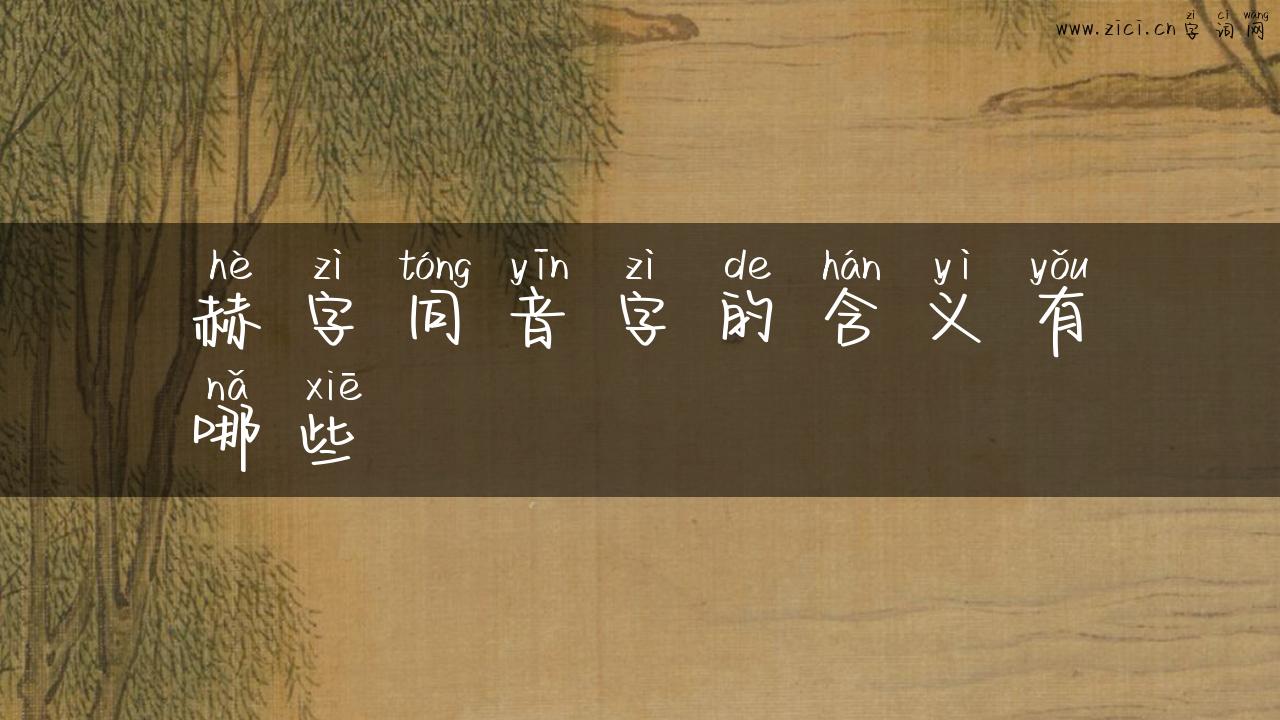 zì cí wǎng
www.zici.cn字词网
hè zì tóng yīn zì de hán yì yǒu
赫字同音字的含义有
nǎ xiē
哪些